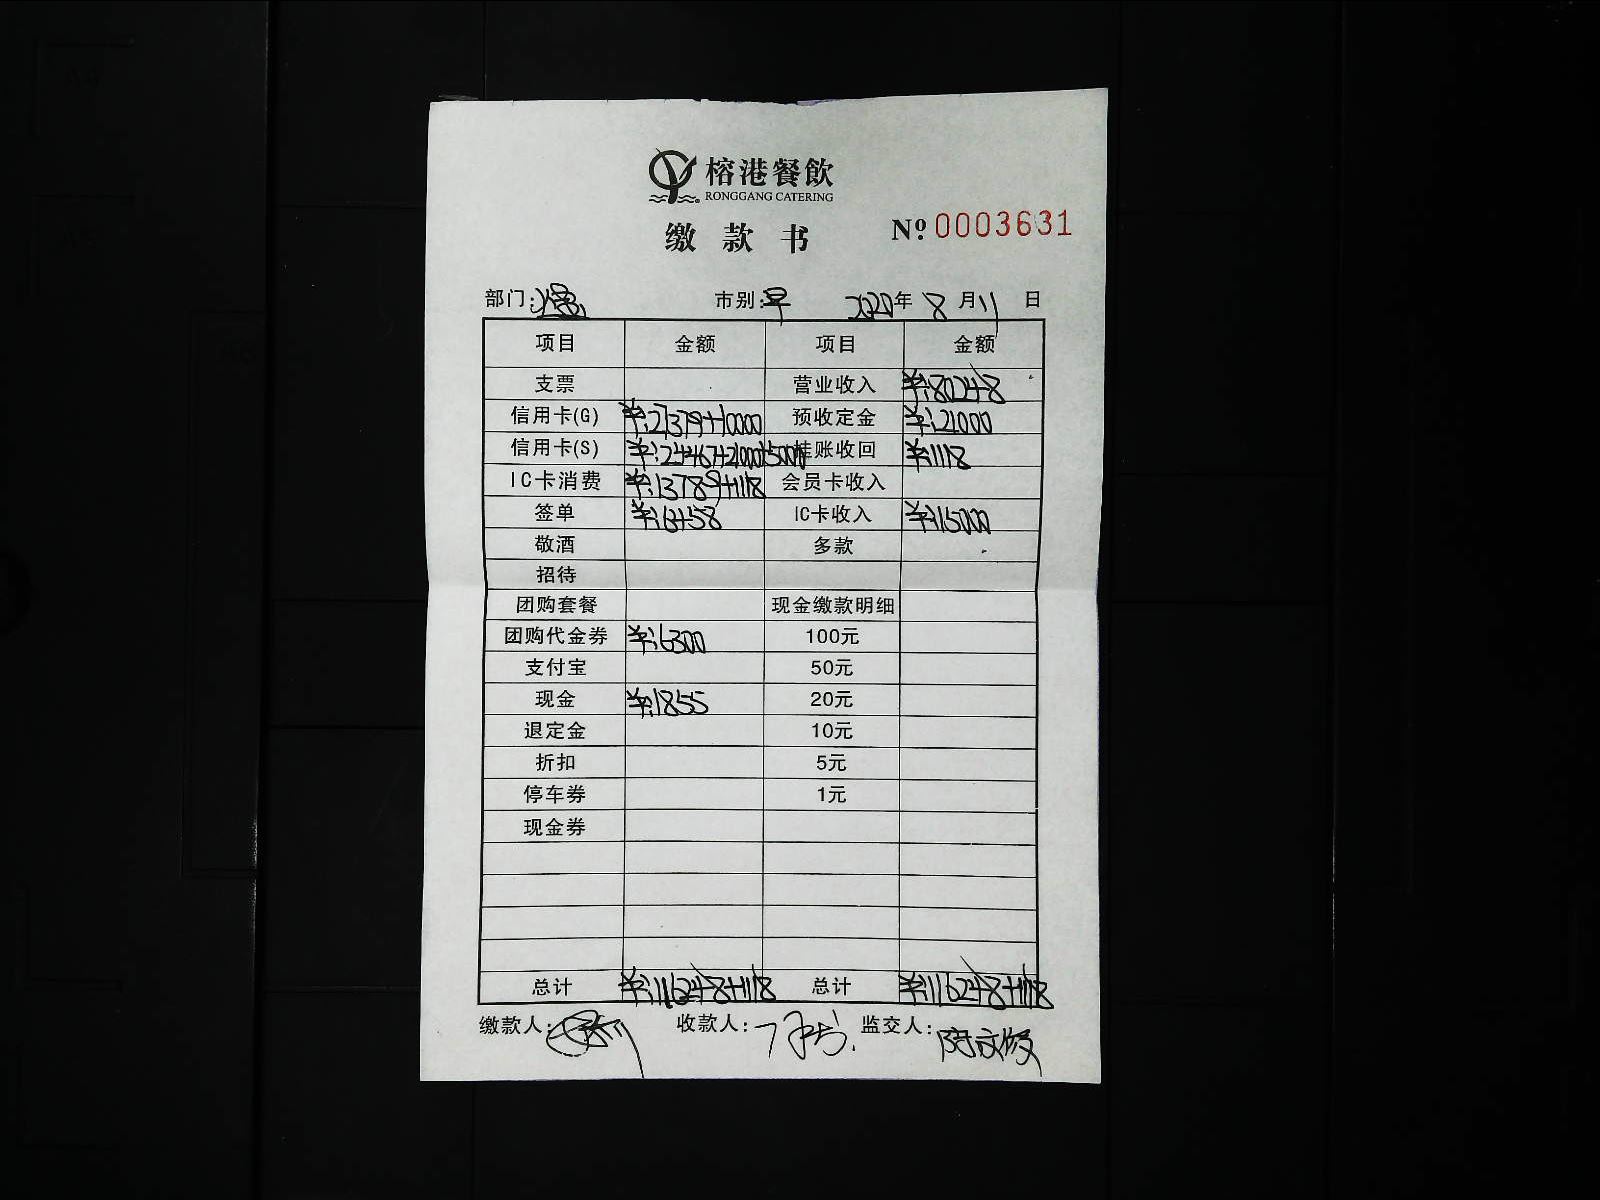 榕港餐飲
RONGGANG CATERING
缴款书 Nº 0003631
部门: 市别:早 2020年8月11日
项目 金额 项目 金额
支票 营业收入 ¥:80248
信用卡(G) ¥:27379+10000 预收定金 ¥:21000
信用卡(S) ¥:24467+21000+5000 挂账收回 ¥:1118
IC卡消费 ¥:13789+1118 会员卡收入
签单 ¥:6458 IC卡收入 ¥:15000
敬酒 多款
招待
团购套餐 现金缴款明细
团购代金券 ¥:6300 100元
支付宝 50元
现金 ¥:1855 20元
退定金 10元
折扣 5元
停车券 1元
现金券
总计 ¥:116248+1118 总计 ¥:116248+1118
缴款人: 收款人: 监交人: